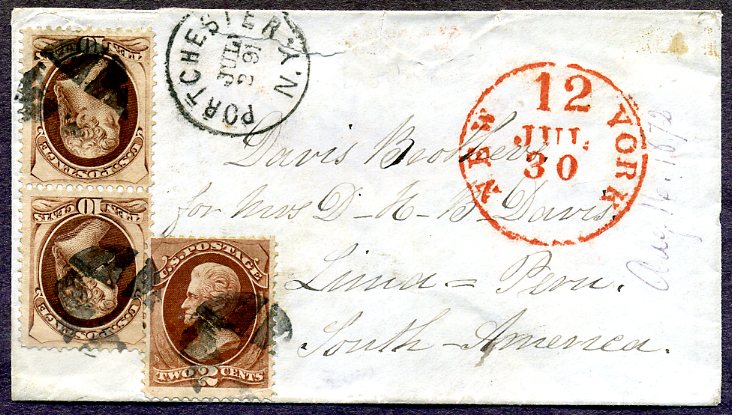 PORTCHESTER N.Y.
JUL
29
NEW YORK
12
JUL
30
Davis Brothers
for Mrs D-K-B-Davis,
Lima = Peru.
South-America.
1872
10
U.S. POSTAGE
TEN CENTS
10
U.S. POSTAGE
TEN CENTS
U.S. POSTAGE
TWO 2 CENTS